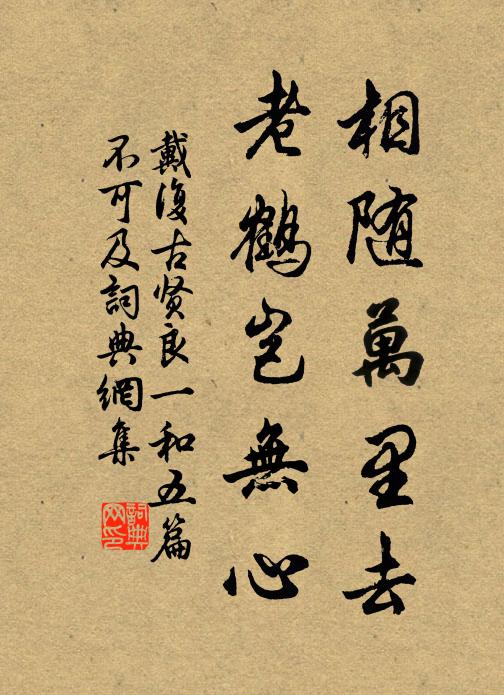 相随萬里去
老鶴豈無心
戴復古贤良一和五篇
不可及詞典網集
詞典
网印